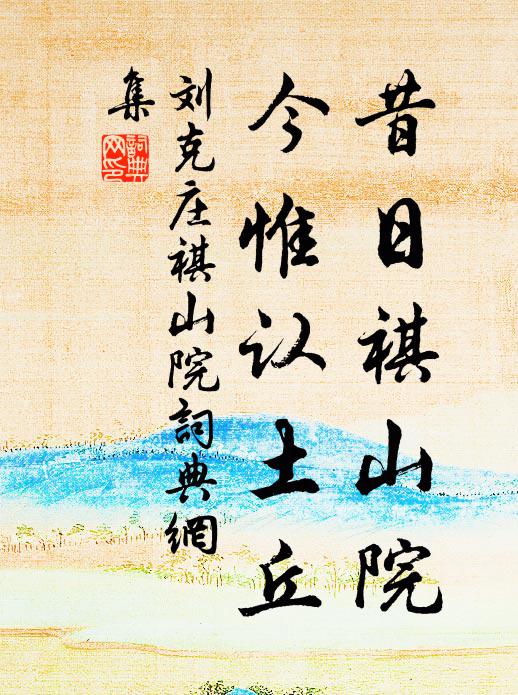 昔日祺山院
今惟认土丘
刘克庄祺山院詞典網
集
詞典网印